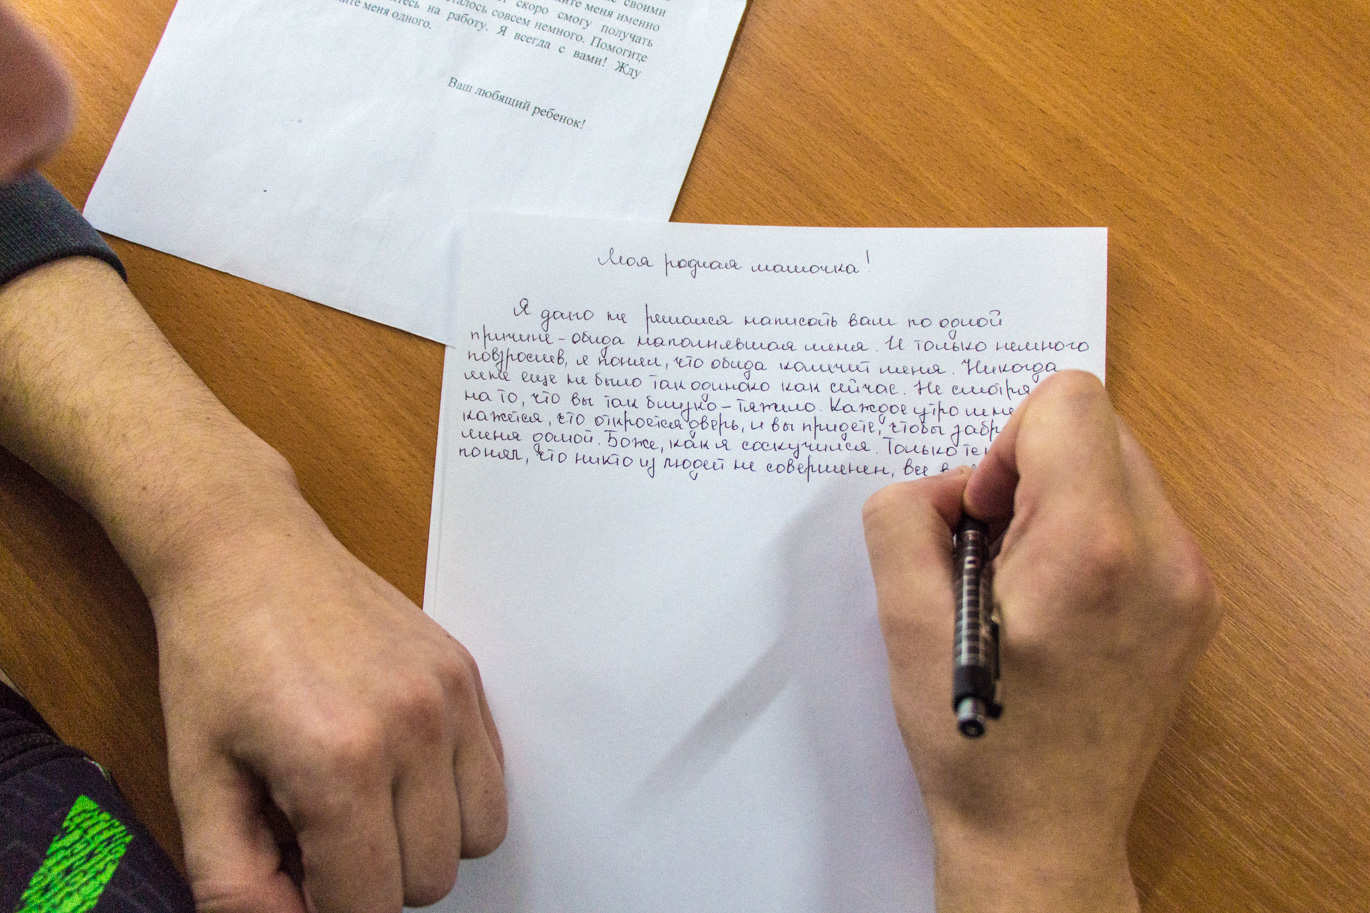 своими
меня именно
скоро смогу получать
талось совсем немного. Помогите
тесь на работу. Я всегда с вами! Жду
меня одного.
Ваш любящий ребенок!
Моя родная мамочка!
Я давно не решался написать вам по одной
причине - обида наполнявшая меня. И только немного
повзрослев, я понял, что обида калечит меня. Никогда
мне еще не было так одиноко как сейчас. Не смотря
на то, что вы так близко - тяжело. Каждое утро мне
кажется, что откроется дверь, и вы придете, чтобы забр
меня домой. Боже, как я соскучился. Только те
понял, что никто из людей не совершенен, все в